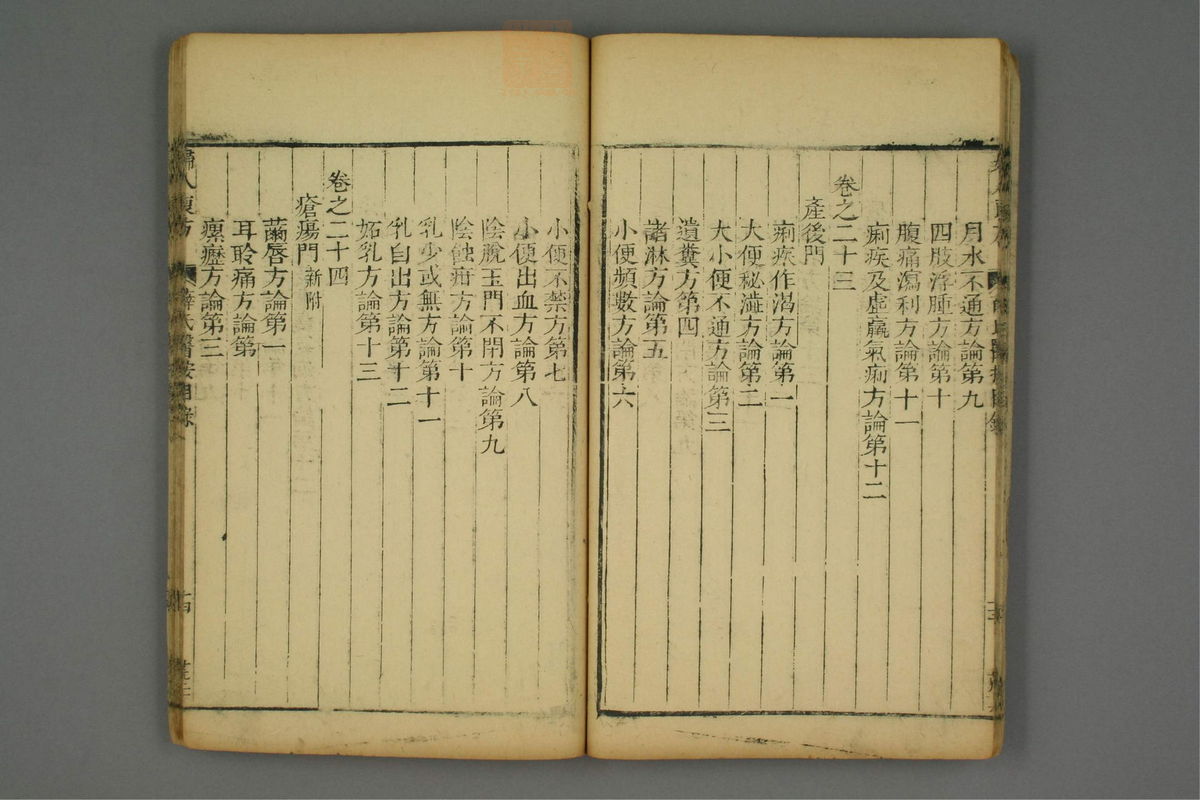 月水不通方論第九
四肢浮腫方論第十
腹痛瀉利方論第十一
痢疾及虛羸氣痢方論第十二
卷之二十三
產後門
痢疾作渴方論第一
大便秘澁方論第二
大小便不通方論第三
遺糞方第四
諸淋方論第五
小便頻數方論第六
小便不禁方第七
小便出血方論第八
陰脫玉門不閉方論第九
陰蝕疳方論第十
乳少或無方論第十一
乳自出方論第十二
妬乳方論第十三
卷之二十四
瘡瘍門新附
繭唇方論第一
耳聆痛方論第
瘰癧方論第三
婦人良方 薛氏醫按目錄